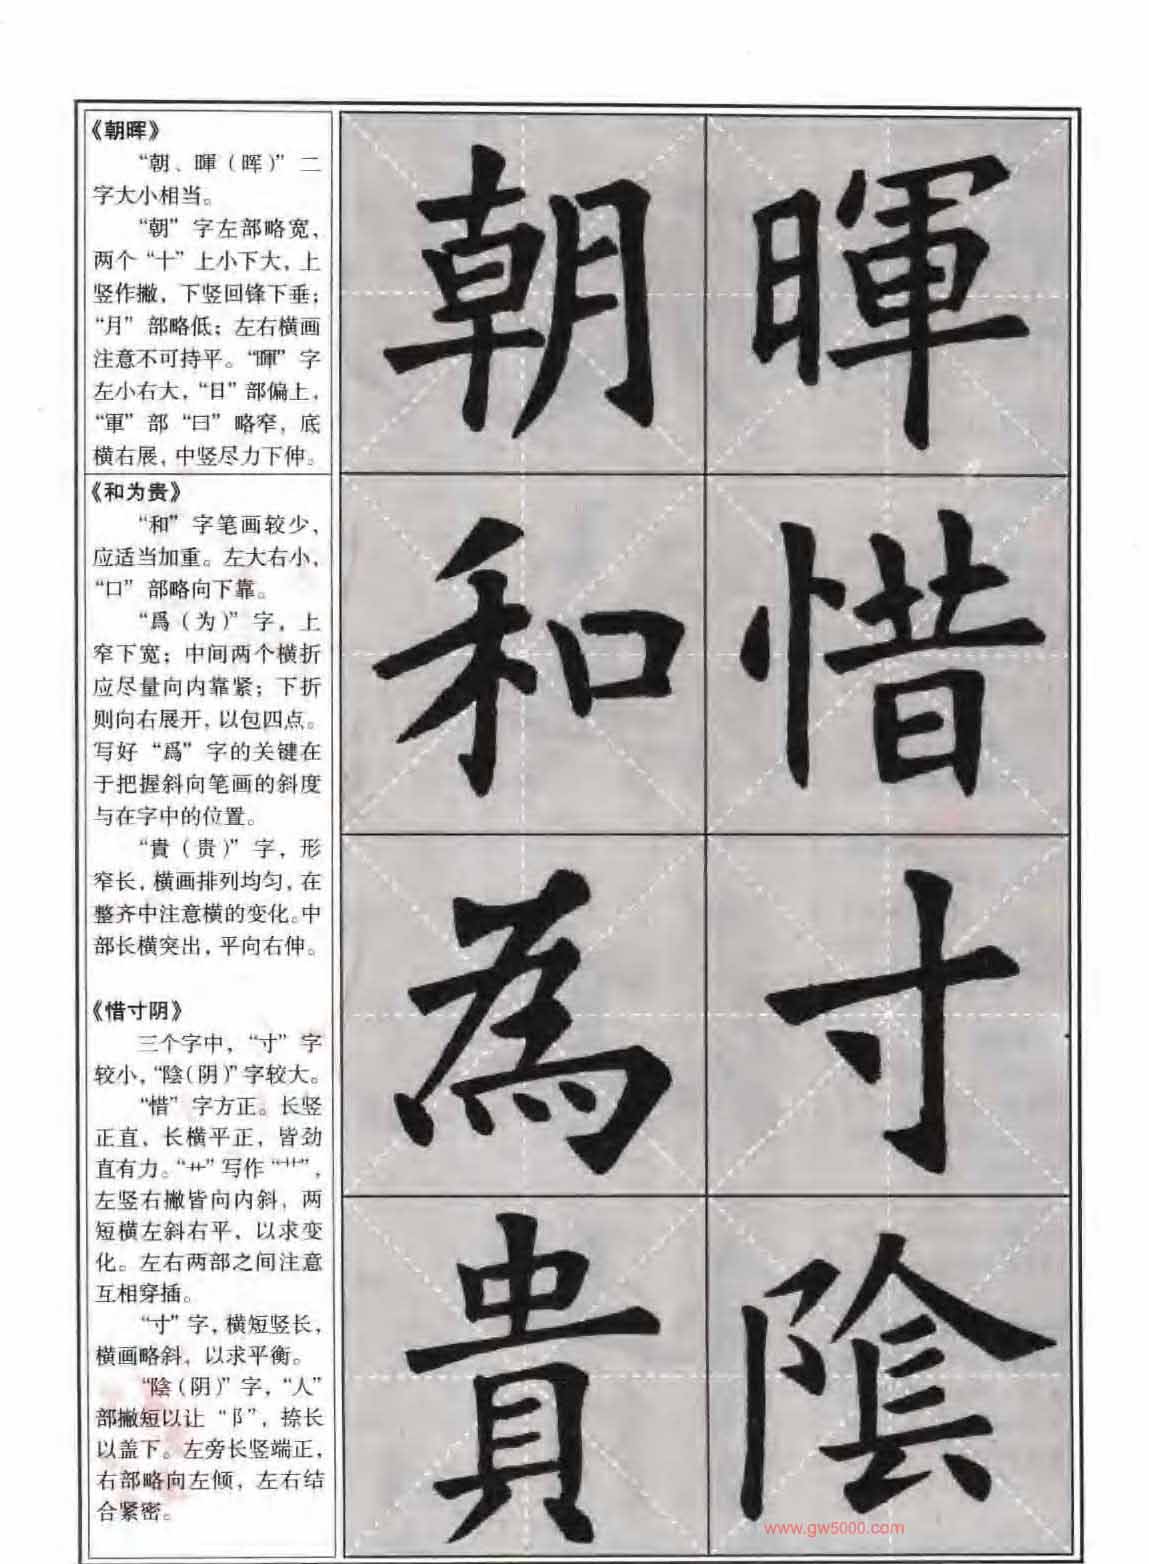 《朝晖》
“朝、暉（晖）”二
字大小相当。
“朝”字左部略宽，
两个“十”上小下大，上
竖作撇，下竖回锋下垂；
“月”部略低；左右横画
注意不可持平。“暉”字
左小右大，“日”部偏上，
“軍”部“曰”略窄，底
横右展，中竖尽力下伸。
《和为贵》
“和”字笔画较少，
应适当加重。左大右小，
“口”部略向下靠。
“爲（为）”字，上
窄下宽；中间两个横折
应尽量向内靠紧；下折
则向右展开，以包四点。
写好“爲”字的关键在
于把握斜向笔画的斜度
与在字中的位置。
“貴（贵）”字，形
窄长，横画排列均匀，在
整齐中注意横的变化。中
部长横突出，平向右伸。
《惜寸阴》
三个字中，“寸”字
较小，“陰（阴）”字较大。
“惜”字方正。长竖
正直，长横平正，皆劲
直有力。“艹”写作“䒑”，
左竖右撇皆向内斜，两
短横左斜右平，以求变
化。左右两部之间注意
互相穿插。
“寸”字，横短竖长，
横画略斜，以求平衡。
“陰（阴）”字，“人”
部撇短以让“阝”，捺长
以盖下。左旁长竖端正，
右部略向左倾，左右结
合紧密。
朝 暉
和 惜
為 寸
貴 陰
www.gw5000.com